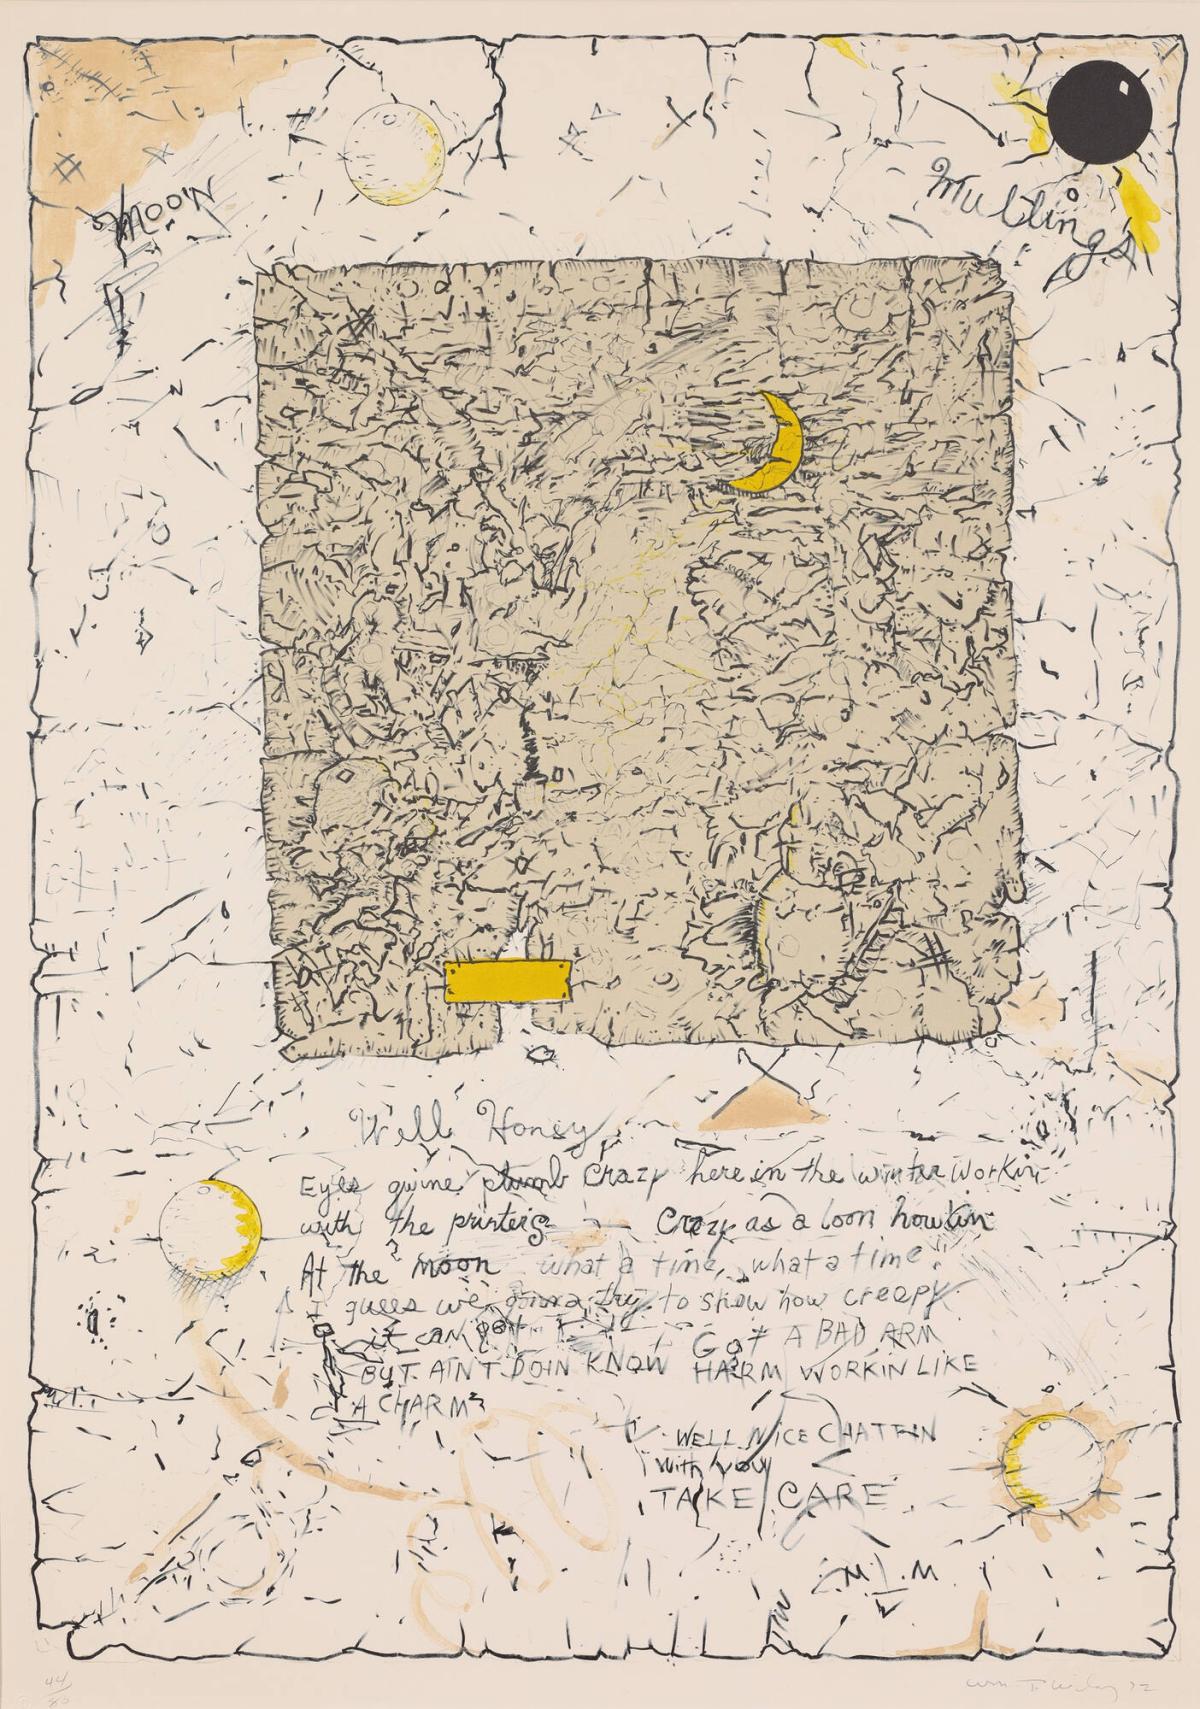 MOON
Mullings
Well Honey
Eyes gwine plumb Crazy here in the winter workin
with the printers Crazy as a loon howlin
At the moon what a time, what a time
I guess we gonna try to show how creepy
it can get Got A BAD ARM
BUT AIN'T DOIN KNOW HARM WORKIN LIKE
A CHARM
WELL NICE CHATTIN
with you
TAKE CARE
44/80
Wm T. Wiley 72